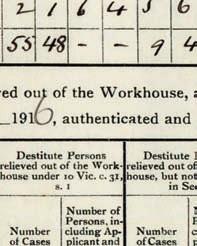 2 1 6 4 5 6
55 48 - - 9 4
ed out of the Workhouse, a
1916, authenticated and
Destitute Persons
relieved out of the Work-
house under 10 Vic. c. 31,
s. 1
Destitute
relieved out of
house, but not
in Sec
Number
of Cases
Number of
Persons, in-
cluding Ap-
plicant and
Number
of Cases